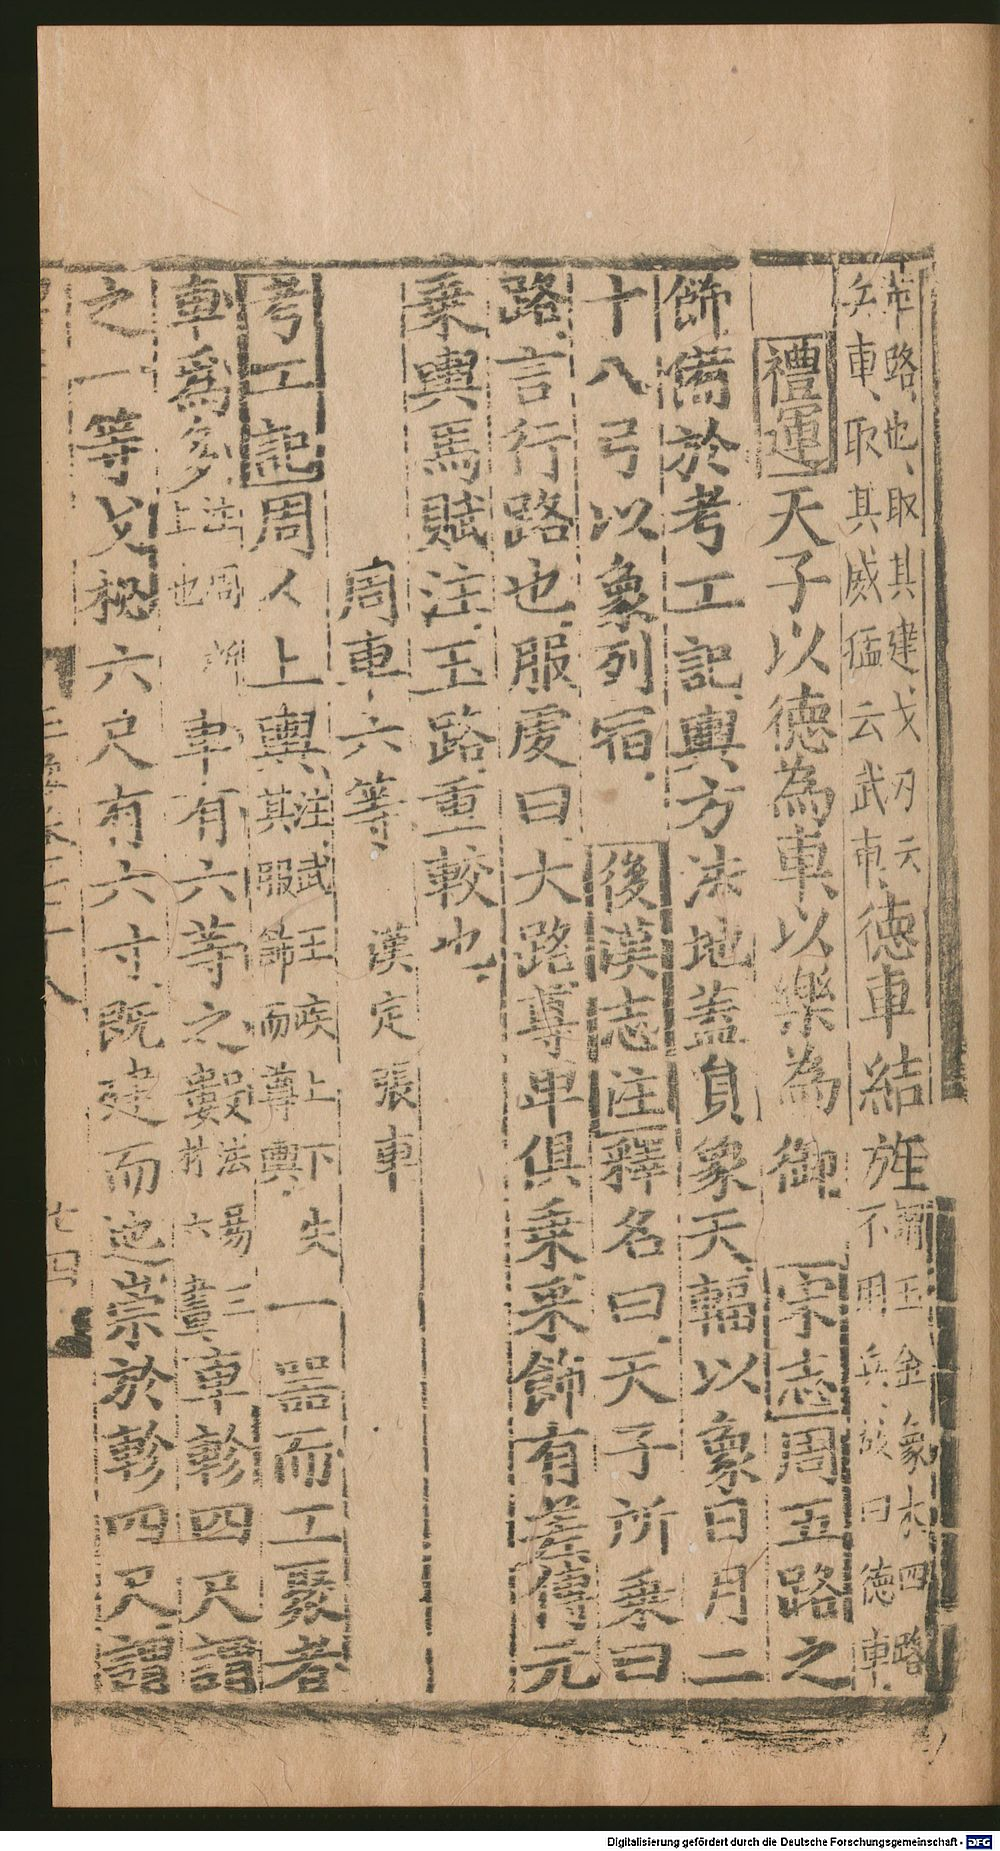 革路也取其建戈刃云
兵車取其威猛云武車德車結旌不用兵故曰德車
玉金象木四路
禮運天子以德為車以樂為御 宋志周五路之
飾備於考工記輿方法地蓋員象天輻以象日月二
十八弓以象列宿 後漢志注釋名曰天子所乘曰
路言行路也服虔曰大路尊卑俱乘采飾有差傅元
乘輿馬賦注玉路重較也
周車六等 漢定張車
考工記周人上輿注武王疾上下失其服飾而尊輿一器而工聚者
車為多注周所上也車有六等之數法易三材六畫車軫四尺謂
之一等戈柲六尺有六寸既建而迤崇於軫四尺謂
Digitalisierung gefördert durch die Deutsche Forschungsgemeinschaft - DFG